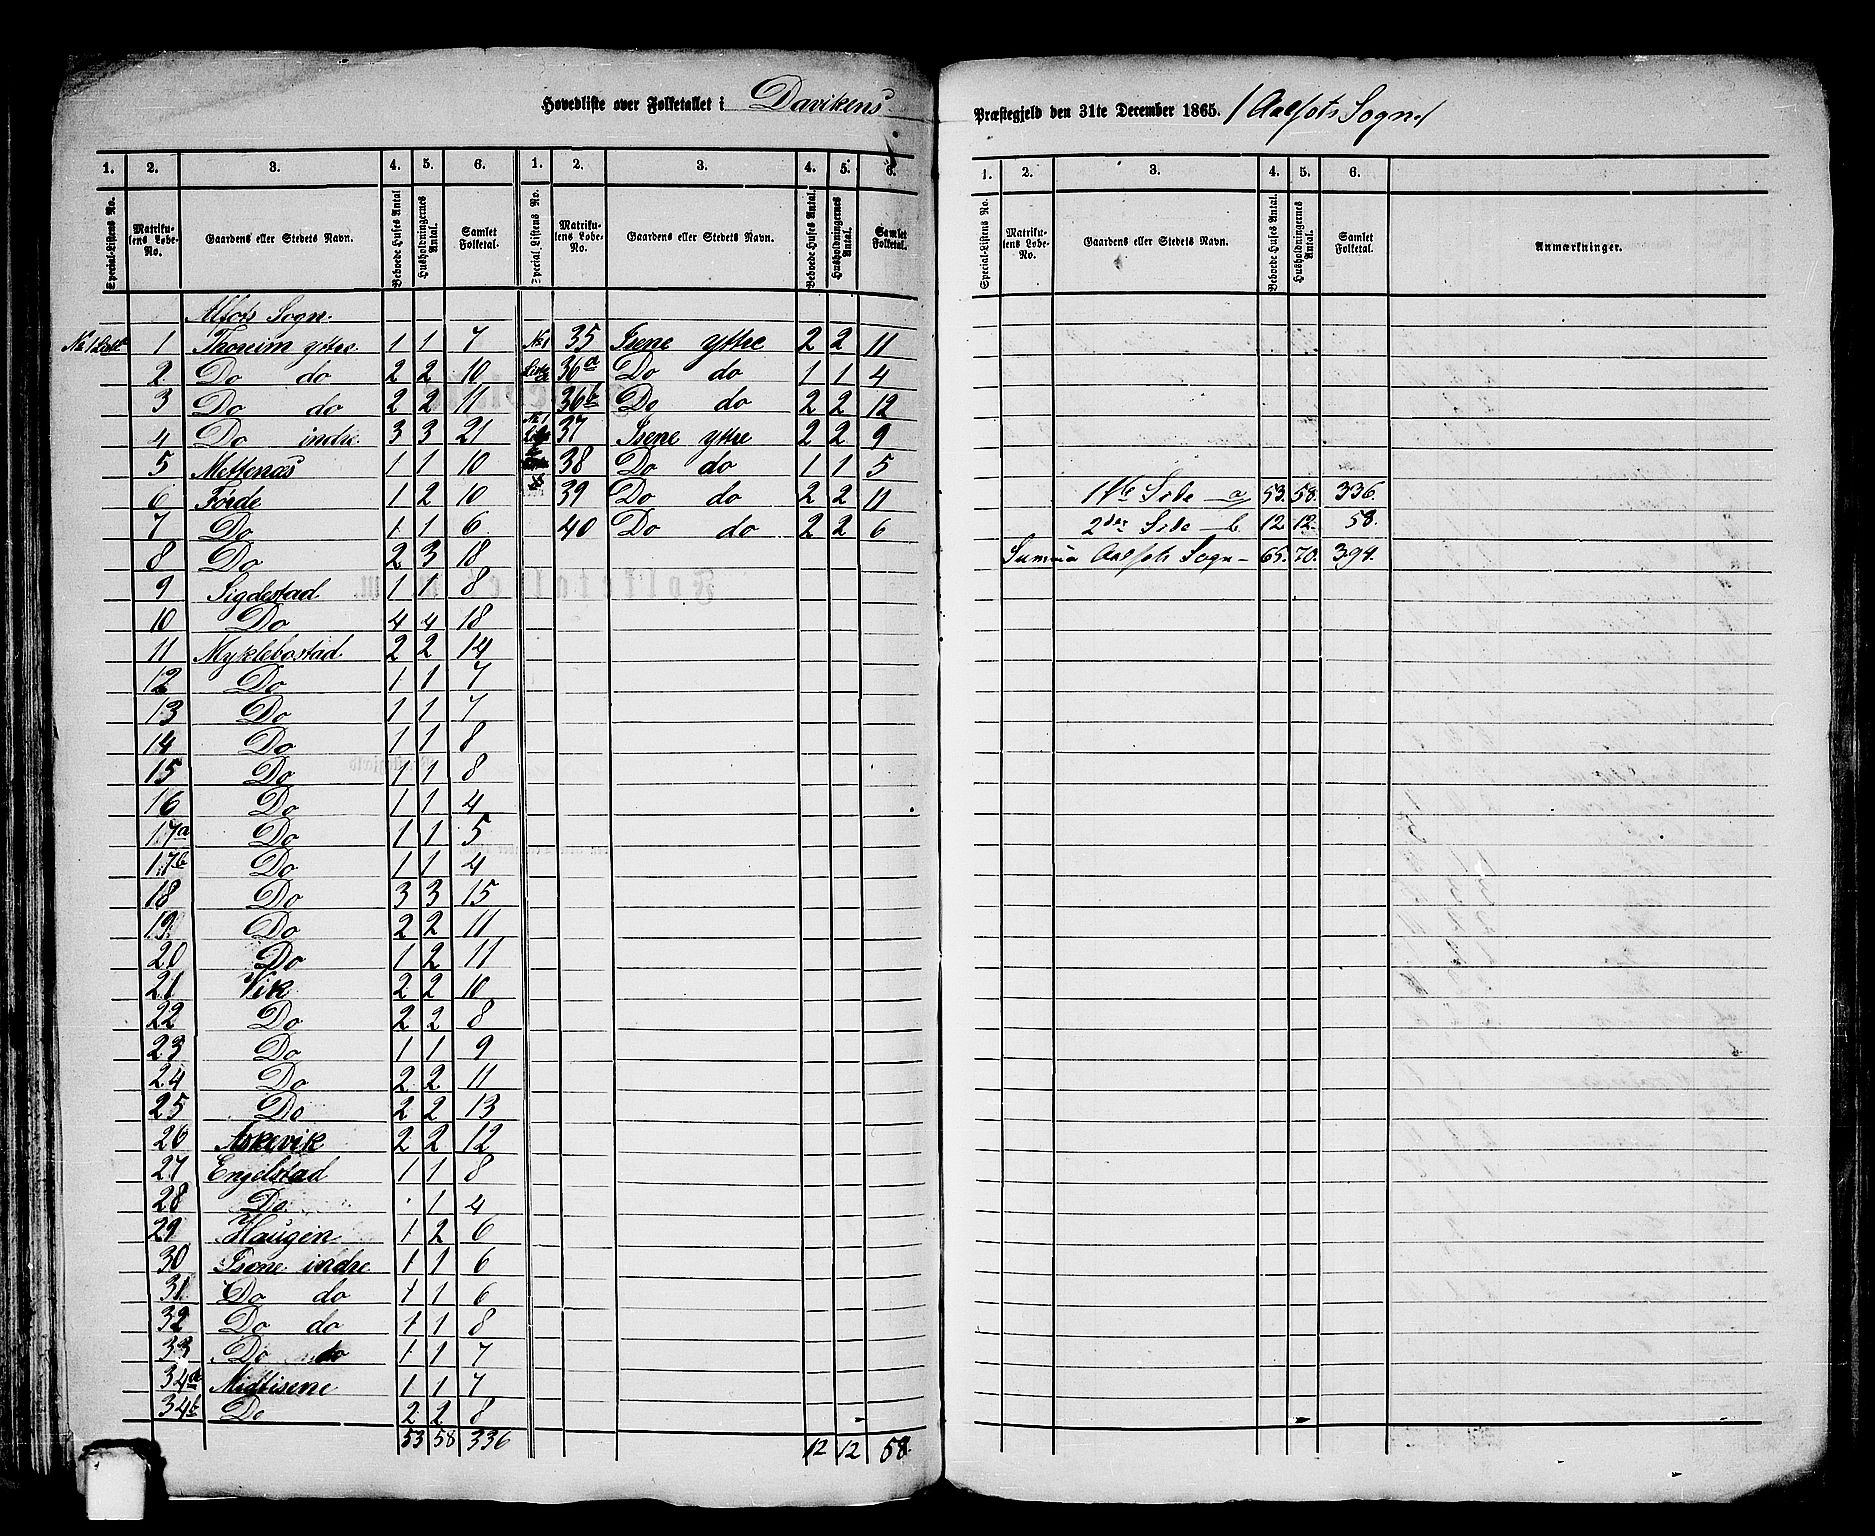 Hovedliste over Folketallet i Davikens
1. 2. 3. 4. 5. 6. 1. 2. 3. 4. 5. 6.
Special-Listens No. Matrikulens Løbe-No. Gaardens eller Stedets Navn. Beboede Huses Antal Husholdningernes Antal. Samlet Folketal. Special-Listens No. Matrikulens Løbe-No. Gaardens eller Stedets Navn. Beboede Huses Antal. Husholdningernes Antal. Samlet Folketal.
Alfots Sogn.
No 1 1 Thoreim yttre 1 1 7 No 1 35 Isene yttre 2 2 11
2 Do do 2 2 10 36a Do do 1 1 4
3 Do do 2 2 11 36b Do do 2 2 12
4 Do indre 3 3 21 No 1 37 Isene yttre 2 2 9
5 Mettenæs 1 1 10 38 Do do 1 1 5
6 Førde 1 2 10 39 Do do 2 2 11
7 Do 1 1 6 40 Do do 2 2 6
8 Do 2 3 18
9 Sigdestad 1 1 8
10 Do 4 4 18
11 Myklebostad 2 2 14
12 Do 1 1 7
13 Do 1 1 7
14 Do 1 1 8
15 Do 1 1 8
16 Do 1 1 4
17a Do 1 1 5
17b Do 1 1 4
18 Do 3 3 15
19 Do 2 2 11
20 Do 1 2 11
21 Vik 2 2 10
22 Do 2 2 8
23 Do 1 1 9
24 Do 2 2 11
25 Do 2 2 13
26 Askevik 2 2 12
27 Engelstad 1 1 8
28 Do . 1 4
29 Haugen 1 2 6
30 Isene indre 1 1 6
31 Do do 1 1 6
32 Do do 1 1 8
33 Do do 1 1 7
34a Midtisene 1 1 7
34b Do 2 2 8
53 58 336 12 12 58.
Præstegjeld den 31te December 1865. / Aalfots Sogn /
1. 2. 3. 4. 5. 6.
Special-Listens No. Matrikulens Løbe-No. Gaardens eller Stedets Navn. Beboede Huses Antal. Husholdningernes Antal. Samlet Folketal. Anmærkninger.
1ste Side - a 53. 58. 336.
2den Side - b 12 12. 58.
Summa Aalfots Sogn - 65. 70. 394.